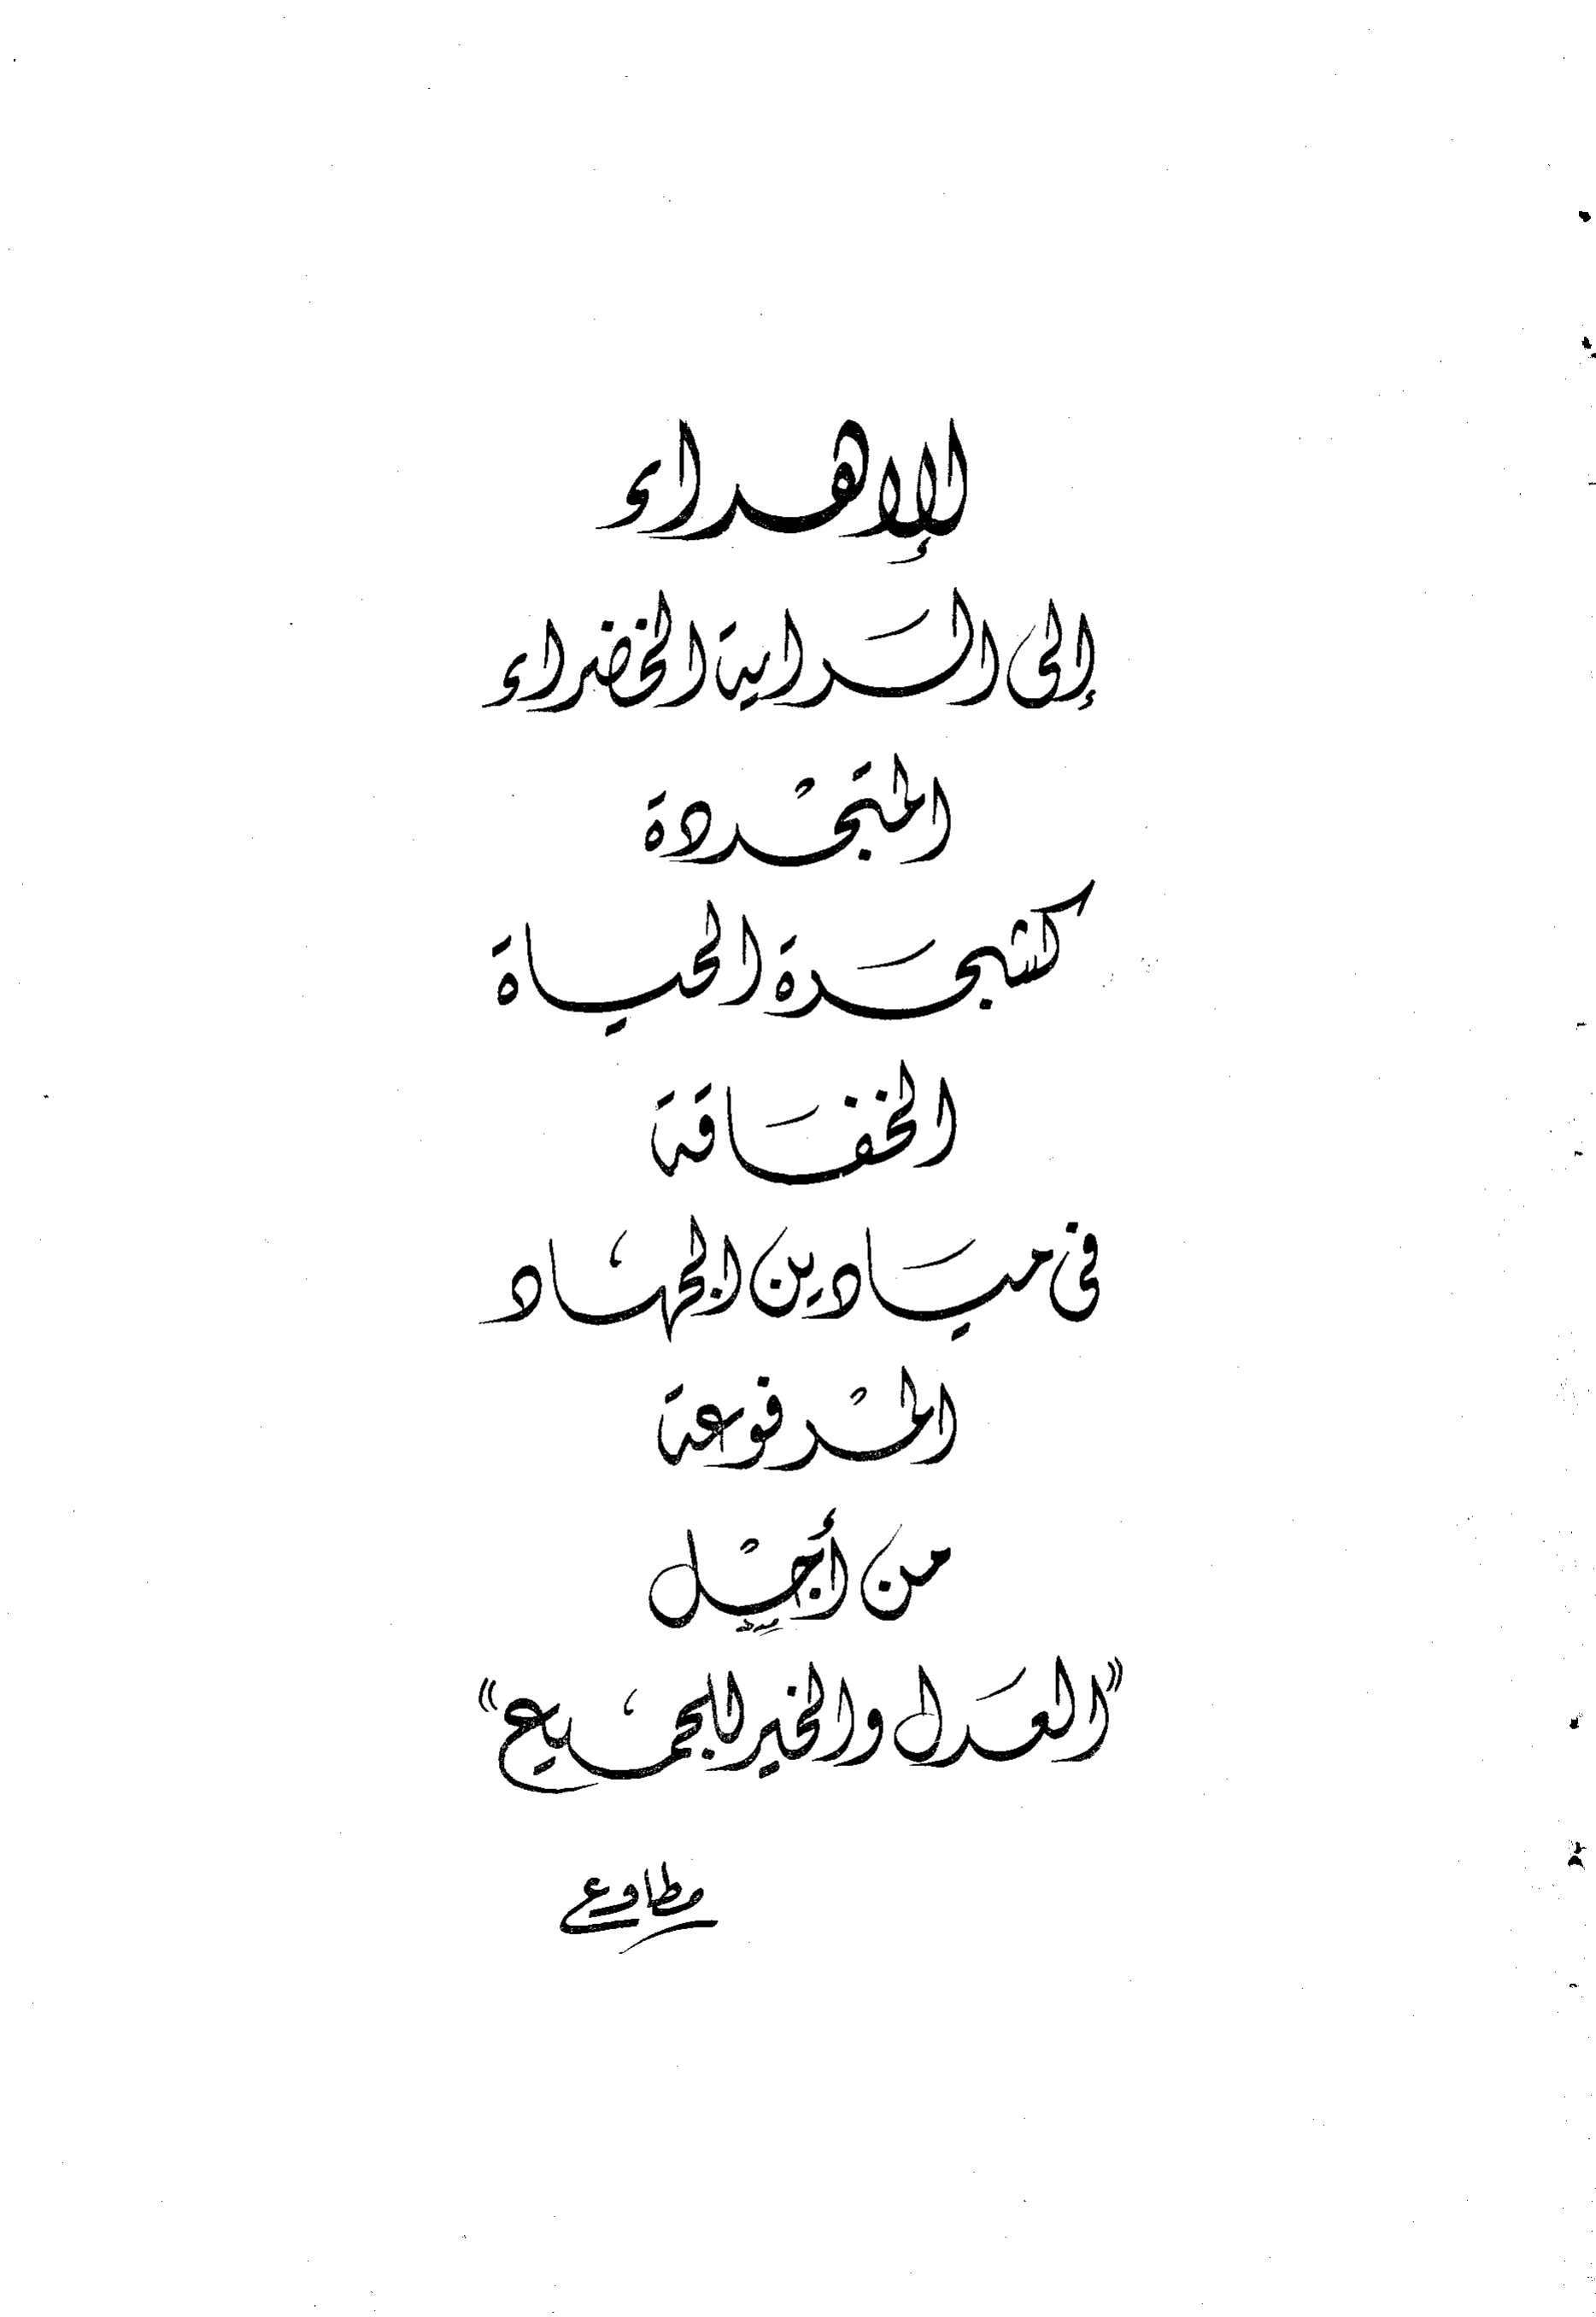 الإهداء
إلى الراية الخضراء
المتجددة
كشجرة الحياة
الخفاقة
فى ميادين الجهاد
المرفوعة
من أجل
"العدل والخير للجميع"
مطاوع